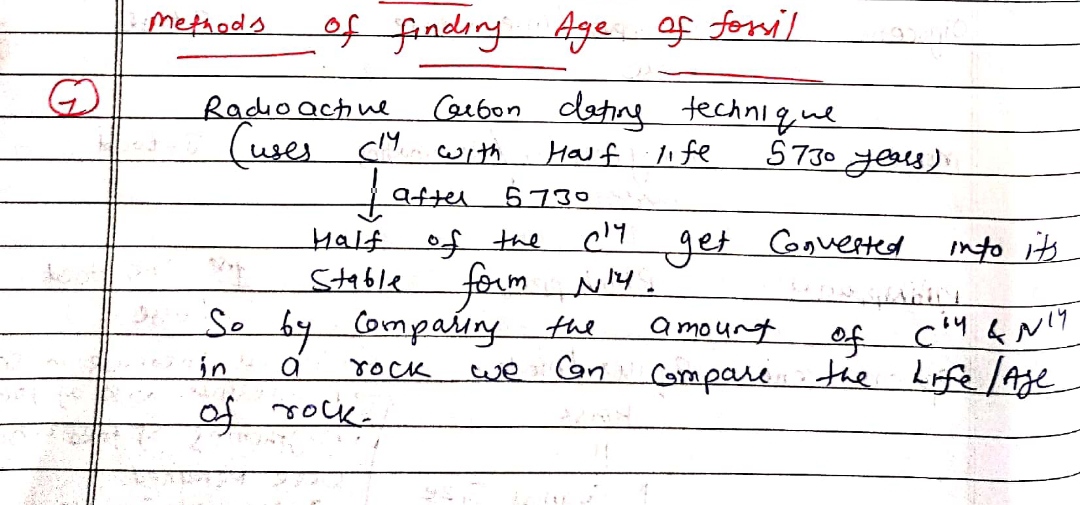 Methods of finding Age of fossil
① Radioactive Carbon dating technique
(uses C¹⁴ with Half life 5730 years)
↓ after 5730
Half of the C¹⁴ get Converted into its
Stable form N¹⁴.
So by Comparing the amount of C¹⁴ & N¹⁴
in a rock we Can Compare the Life / Age
of rock.